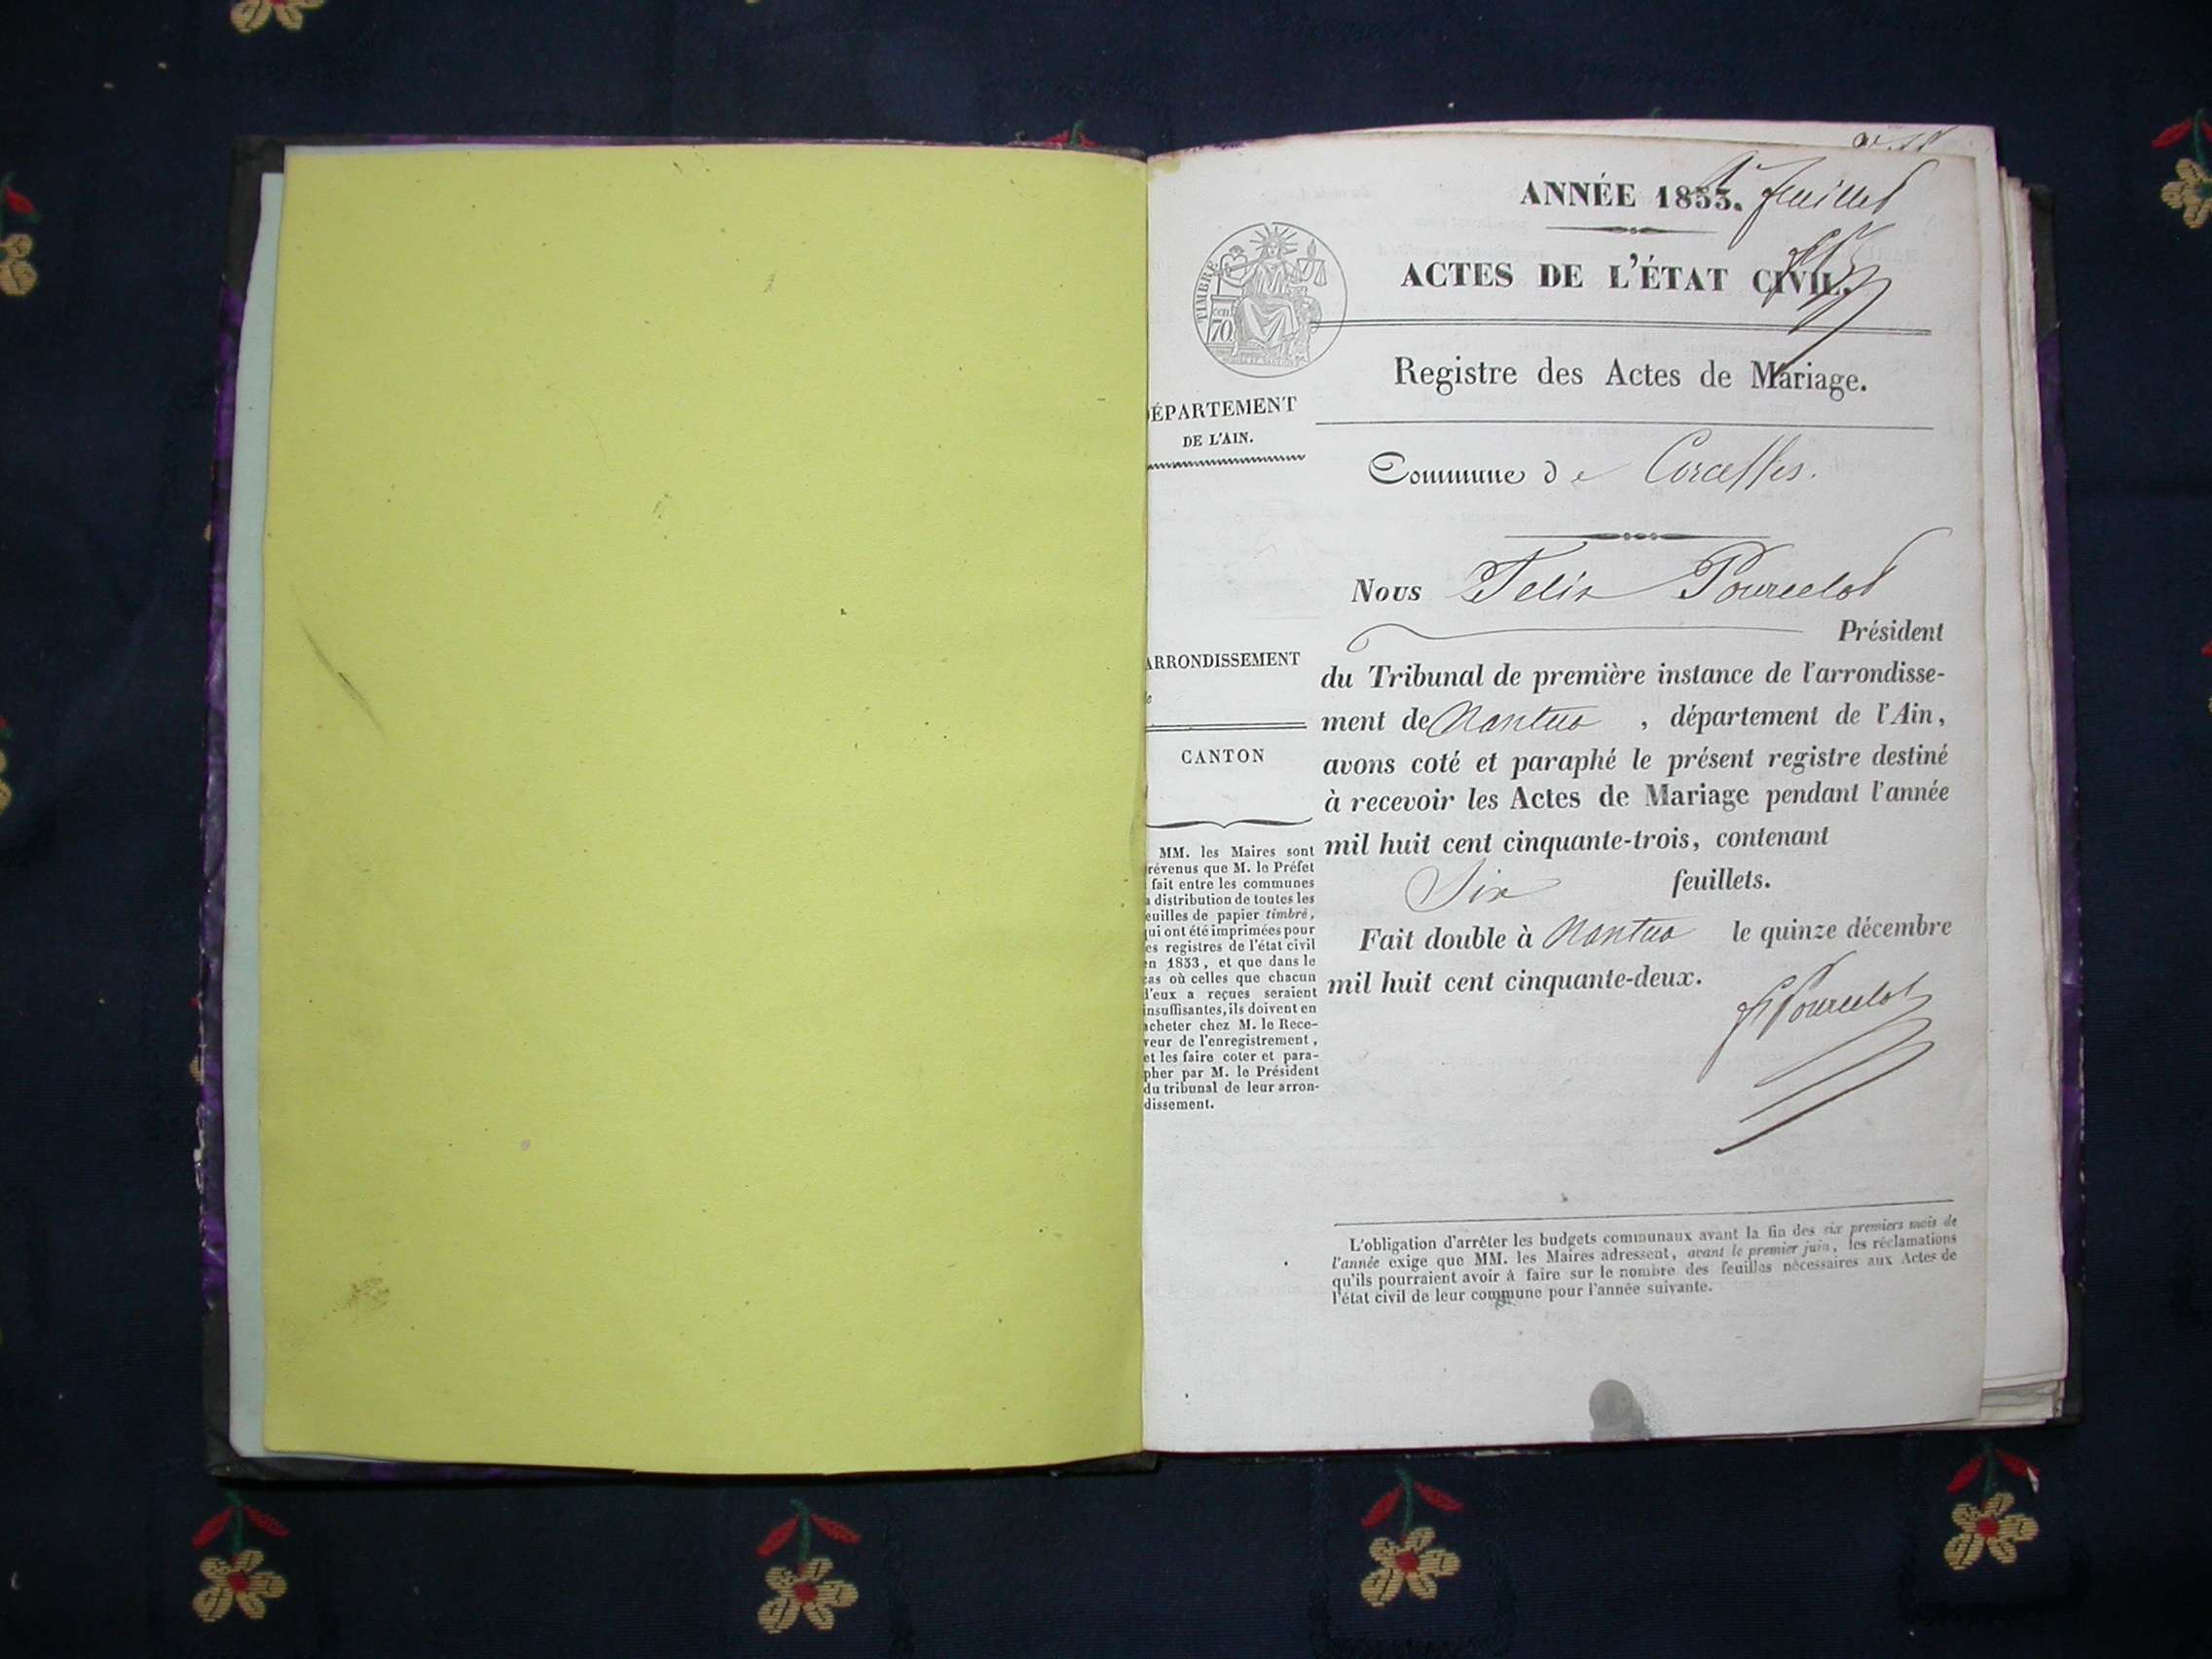 1er feuillet
ANNÉE 1853.
ACTES DE L'ÉTAT CIVIL.
TIMBRE
cen.
70.
Registre des Actes de Mariage.
DÉPARTEMENT
DE L'AIN.
Commune de Corcelles.
Nous Felix Pourcelot
Président
ARRONDISSEMENT
du Tribunal de première instance de l'arrondisse-
ment de Nantua , département de l'Ain,
CANTON
avons coté et paraphé le présent registre destiné
à recevoir les Actes de Mariage pendant l'année
mil huit cent cinquante-trois, contenant
Six feuillets.
Fait double à Nantua le quinze décembre
mil huit cent cinquante-deux.
F Pourcelot
MM. les Maires sont
révenus que M. le Préfet
fait entre les communes
a distribution de toutes les
euilles de papier timbré,
qui ont été imprimées pour
es registres de l'état civil
en 1853, et que dans le
cas où celles que chacun
d'eux a reçues seraient
insuffisantes, ils doivent en
acheter chez M. le Rece-
veur de l'enregistrement,
et les faire coter et para-
pher par M. le Président
du tribunal de leur arron-
dissement.
L'obligation d'arrêter les budgets communaux avant la fin des six premiers mois de
l'année exige que MM. les Maires adressent, avant le premier juin, les réclamations
qu'ils pourraient avoir à faire sur le nombre des feuilles nécessaires aux Actes de
l'état civil de leur commune pour l'année suivante.